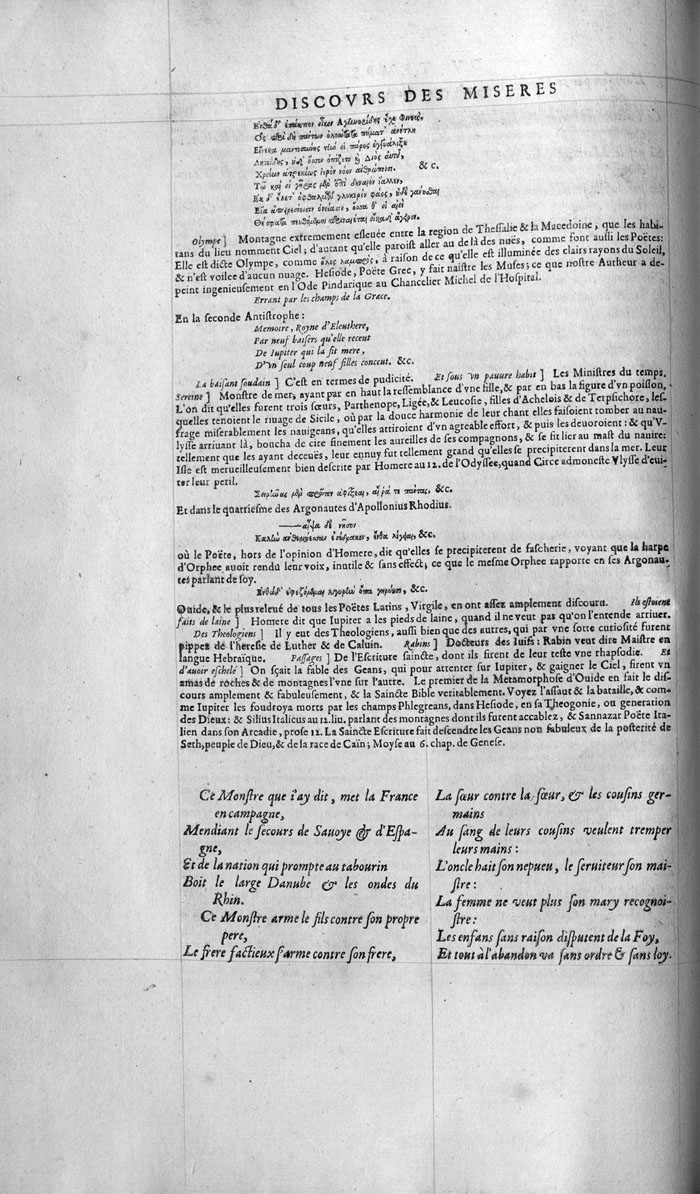 DISCOVRS DES MISERES
&c.
Olympe] Montagne extremement esleuée entre la region de Thessalie & la Macedoine, que les habi-
tans du lieu nomment Ciel; d'autant qu'elle paroist aller au delà des nuës, comme font aussi les Poëtes:
Elle est dicte Olympe, comme à raison de ce qu'elle est illuminée des clairs rayons du Soleil,
& n'est voilee d'aucun nuage. Hesiode, Poëte Grec, y fait naistre les Muses; ce que nostre Autheur a de-
peint ingenieusement en l'Ode Pindarique au Chancelier Michel de l'Hospital.
Errant par les champs de la Grace.
En la seconde Antistrophe:
Memoire, Royne d'Eleuthere,
Par neuf baisers qu'elle receut
De Iupiter qui la fit mere,
D'vn seul coup neuf filles conceut. &c.
La baisant soudain] C'est en termes de pudicité. Et sous vn pauure habit] Les Ministres du temps.
Sereine] Monstre de mer, ayant par en haut la ressemblance d'vne fille, & par en bas la figure d'vn poisson.
L'on dit qu'elles furent trois sœurs, Parthenope, Ligée, & Leucosie, filles d'Achelois & de Terpsichore, les-
quelles tenoient le riuage de Sicile, où par la douce harmonie de leur chant elles faisoient tomber au nau-
frage miserablement les nauigeans, qu'elles attiroient d'vn agreable effort, & puis les deuoroient: & qu'V-
lysse arriuant là, boucha de cire finement les aureilles de ses compagnons, & se fit lier au mast du nauire:
tellement que les ayant deceuës, leur ennuy fut tellement grand qu'elles se precipiterent dans la mer. Leur
Isle est merueilleusement bien descrite par Homere au 12. de l'Odyssee, quand Circe admoneste Vlysse d'eui-
ter leur peril.
&c.
Et dans le quatriesme des Argonautes d'Apollonius Rhodius.
&c.
où le Poëte, hors de l'opinion d'Homere, dit qu'elles se precipiterent de fascherie, voyant que la harpe
d'Orphee auoit rendu leur voix, inutile & sans effect; ce que le mesme Orphee rapporte en ses Argonau-
tes parlant de soy.
&c.
Ouide, & le plus releué de tous les Poëtes Latins, Virgile, en ont assez amplement discouru. Ils estoient
faits de laine] Homere dit que Iupiter a les pieds de laine, quand il ne veut pas qu'on l'entende arriuer.
Des Theologiens] Il y eut des Theologiens, aussi bien que des autres, qui par vne sotte curiosité furent
pippez de l'heresie de Luther & de Caluin. Rabins] Docteurs des Iuifs: Rabin veut dire Maistre en
langue Hebraïque. Passages] De l'Escriture saincte, dont ils firent de leur teste vne rhapsodie. Et
d'auoir eschelé] On sçait la fable des Geans, qui pour attenter sur Iupiter, & gaigner le Ciel, firent vn
amas de roches & de montagnes l'vne sur l'autre. Le premier de la Metamorphose d'Ouide en fait le dis-
cours amplement & fabuleusement, & la Saincte Bible veritablement. Voyez l'assaut & la bataille, & com-
me Iupiter les foudroya morts par les champs Phlegreans, dans Hesiode, en sa Theogonie, ou generation
des Dieux: & Silius Italicus au 12. liu. parlant des montagnes dont ils furent accablez, & Sannazar Poëte Ita-
lien dans son Arcadie, prose 12. La Saincte Escriture fait descendre les Geans non fabuleux de la posterité de
Seth, peuple de Dieu, & de la race de Caïn; Moyse au 6. chap. de Genese.
Ce Monstre que i'ay dit, met la France
en campagne,
Mendiant le secours de Sauoye & d'Espa-
gne,
Et de la nation qui prompte au tabourin
Boit le large Danube & les ondes du
Rhin.
Ce Monstre arme le fils contre son propre
pere,
Le frere factieux s'arme contre son frere,
La sœur contre la sœur, & les cousins ger-
mains
Au sang de leurs cousins veulent tremper
leurs mains:
L'oncle hait son nepueu, le seruiteur son mai-
stre:
La femme ne veut plus son mary recognoi-
stre:
Les enfans sans raison disputent de la Foy,
Et tout à l'abandon va sans ordre & sans loy.